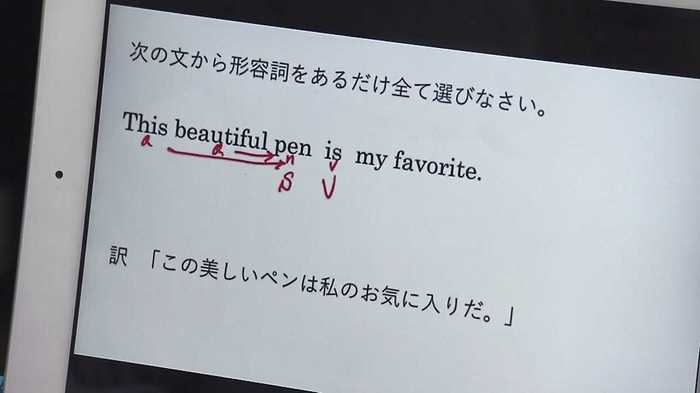 次の文から形容詞をあるだけ全て選びなさい。
This beautiful pen is my favorite.
a a n v
S V
訳 「この美しいペンは私のお気に入りだ。」